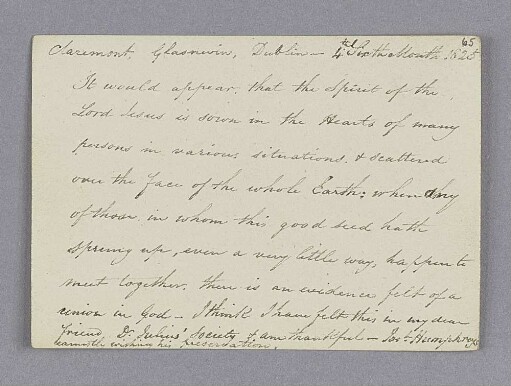 65
Claremont, Glasnevin, Dublin – 4th Sixth Month 1825
It would appear, that the Spirit of the
Lord Jesus is sown in the Hearts of many
persons in various situations, & scattered
over the face of the whole Earth: when any
of those in whom this good seed hath
sprung up, even a very little way, happen to
meet together, there is an evidence felt of a
union in God – I think I have felt this in my dear
friend Dr. Julius' Society & am thankful – Jos. Humphreys
warmly wishing his preservation.